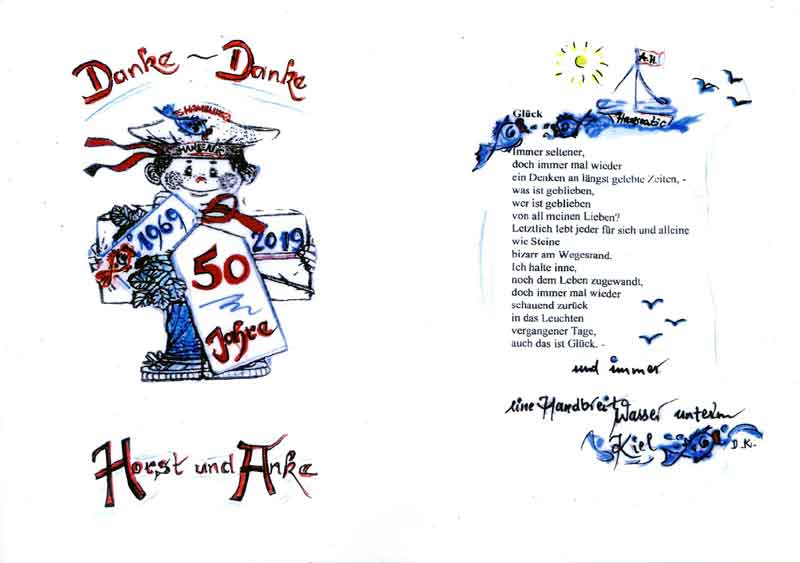 Danke ~ Danke
S HAMBURG
HANSEATIC
1969
2019
50
Jahre
Horst und Anke
A.H.
Hanseatic
Glück
Immer seltener,
doch immer mal wieder
ein Denken an längst gelebte Zeiten, -
was ist geblieben,
wer ist geblieben
von all meinen Lieben?
Letztlich lebt jeder für sich und alleine
wie Steine
bizarr am Wegesrand.
Ich halte inne,
noch dem Leben zugewandt,
doch immer mal wieder
schauend zurück
in das Leuchten
vergangener Tage,
auch das ist Glück. -
und immer
eine Handbreit Wasser unterm
Kiel
D.K.-